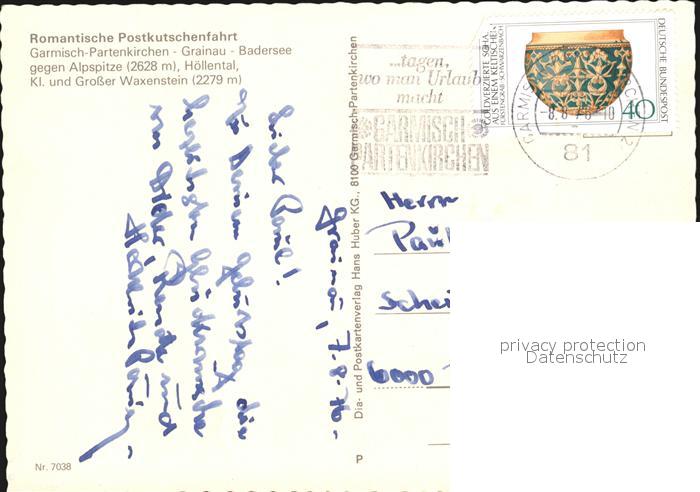 Romantische Postkutschenfahrt
Garmisch-Partenkirchen - Grainau - Badersee
gegen Alpspitze (2628 m), Höllental,
Kl. und Großer Waxenstein (2279 m)
Grainau, 7.8.76.
Lieber Paul!
die
herzlichsten Glückwünsche
von
Nr. 7038
Dia- und Postkartenverlag Hans Huber KG., 8100 Garmisch-Partenkirchen
P
...tagen,
wo man Urlaub
macht
GARMISCH-
PARTENKIRCHEN
GOLDVERZIERTE SCHA
AUS EINEM KELTISCHEN
FÜRSTENGRAB SCHWARZENBACH
DEUTSCHE BUNDESPOST
40
GARMIS
CHEN 2
-8.8.76-10
81
Herrn
Paul
Schei
6000
privacy protection
Datenschutz